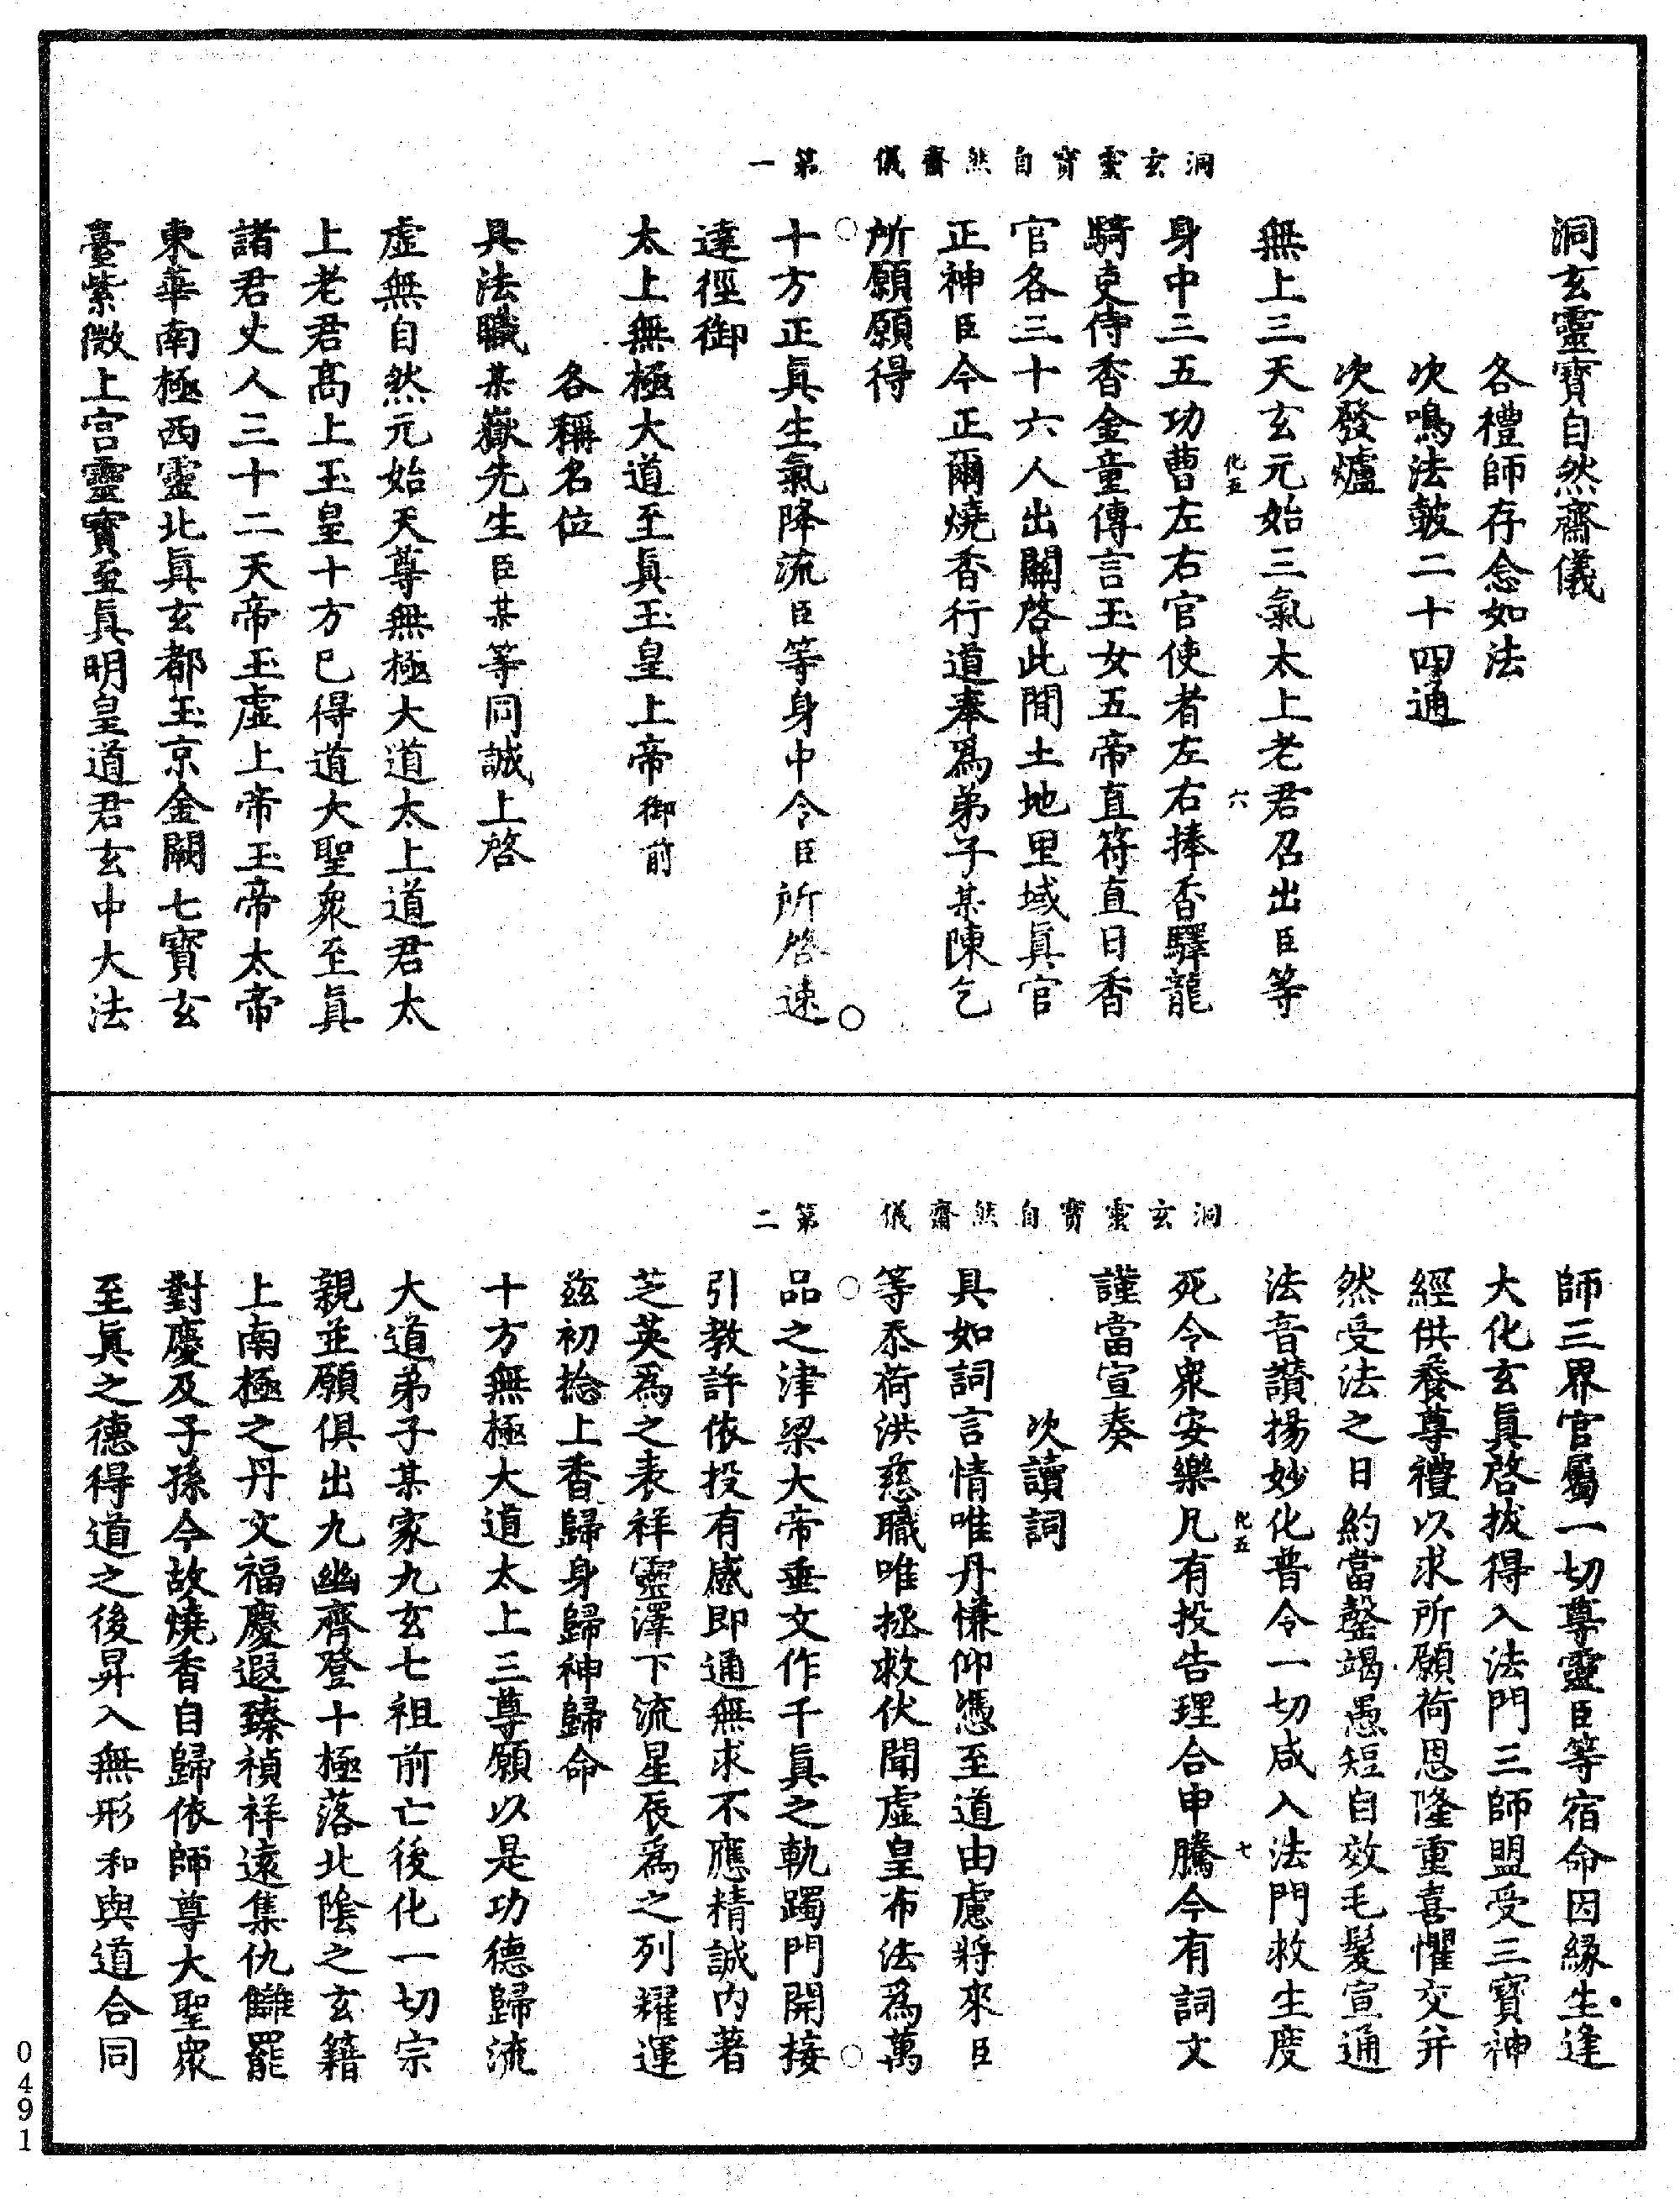 洞玄靈寶自然齋儀
各禮師存念如法
次鳴法鼓二十四通
次發爐
無上三天玄元始三氣太上老君召出臣等
化五 六
身中三五功曹左右官使者左右捧香驛龍
騎吏侍香金童傳言玉女五帝直符直日香
官各三十六人出關啓此間土地里域眞官
正神臣今正爾燒香行道奉爲弟子某陳乞
所願願得
洞玄靈寶自然齋儀 第一
十方正眞生氣降流臣等身中令臣所啓速
達徑御
太上無極大道至眞玉皇上帝御前
各稱名位
具法職某嶽先生臣某等同誠上啓
虛無自然元始天尊無極大道太上道君太
上老君高上玉皇十方已得道大聖衆至眞
諸君丈人三十二天帝玉虛上帝玉帝太帝
東華南極西靈北眞玄都玉京金闕七寶玄
臺紫微上宮靈寶至眞明皇道君玄中大法
師三界官屬一切尊靈臣等宿命因緣生逢
大化玄眞啓拔得入法門三師盟受三寶神
經供養尊禮以求所願荷恩隆重喜懼交并
然受法之日約當罄竭愚短自效毛髮宣通
法音讃揚妙化普令一切咸入法門救生度
化五 七
死令衆安樂凡有投告理合申騰今有詞文
謹當宣奏
次讀詞
具如詞言情唯丹慊仰憑至道由慮將來臣
等忝荷洪慈職唯拯救伏聞虛皇布法爲萬
洞玄靈寶自然齋儀 第二
品之津梁大帝垂文作千眞之軌躅門開接
引教許依投有感即通無求不應精誠內著
芝英爲之表祥靈澤下流星辰爲之列耀運
茲初捻上香歸身歸神歸命
十方無極大道太上三尊願以是功德歸流
大道弟子某家九玄七祖前亡後化一切宗
親並願俱出九幽齊登十極落北陰之玄籍
上南極之丹文福慶遐臻禎祥遠集仇讎罷
對慶及子孫今故燒香自歸依師尊大聖衆
至眞之德得道之後昇入無形和與道合同
0491